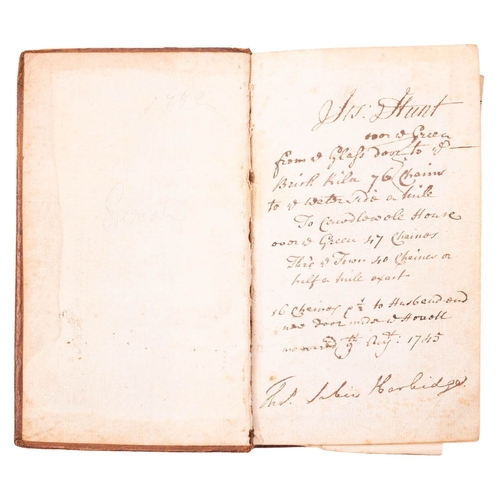 Jos: Hunt
over ye Green
from ye Glass door to ye
Brick Kiln 76 Chains
to ye water side a mile
To House
over ye Green 47 Chaines
Thro ye Town 40 Chaines or
half a mile exact
16 Chaines to Husband and
door
measured Augt: 1745
Thos. Harbidge